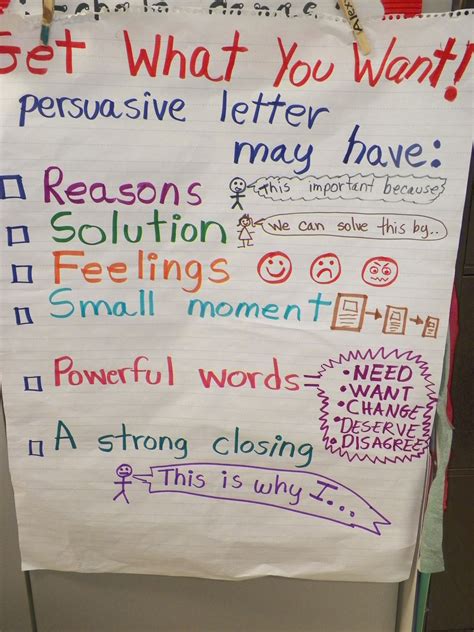 Get What You Want!
persuasive letter
may have:
Reasons
This important because
Solution
We can solve this by..
Feelings
Small moment
Powerful words
• NEED
• WANT
• CHANGE
• DESERVE
• DISAGREE
A strong closing
This is why I...